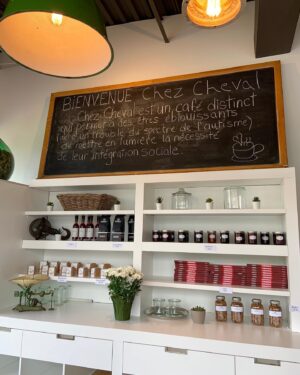 BiENVENUE Chez Cheval
Chez Cheval est un café distinct
qui permet à des êtres éblouissants
(vivre un trouble du spectre de l'autisme)
de mettre en lumière la nécessité
de leur intégration sociale.